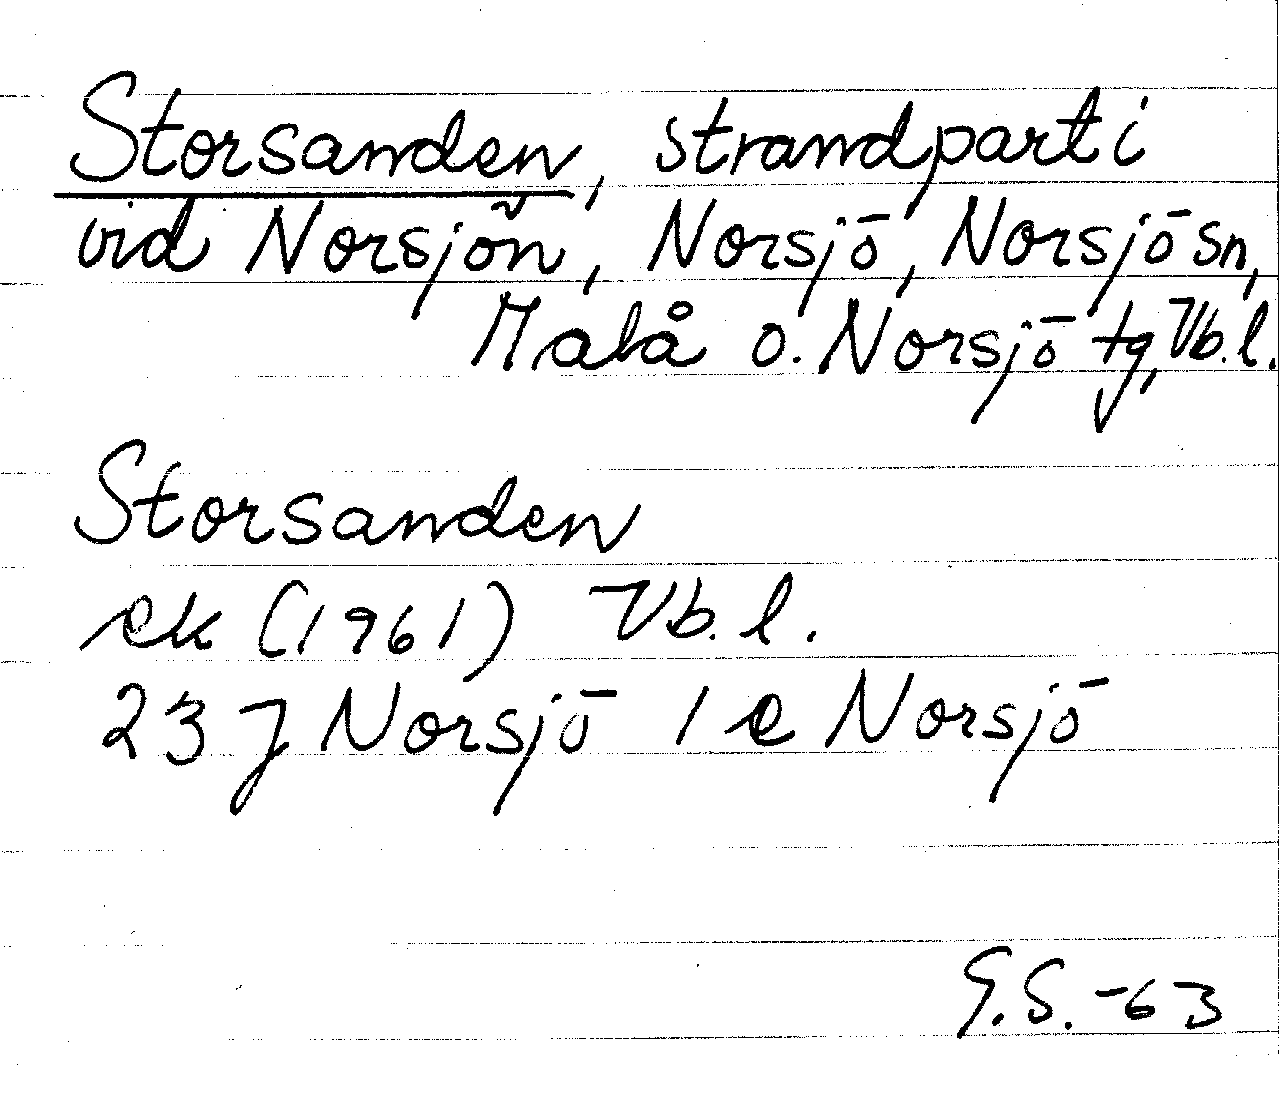 Storsanden, strandparti
vid Norsjön, Norsjö, Norsjö sn,
Malå o. Norsjö tg, Vb.l.
Storsanden
ek (1961) Vb.l.
23 J Norsjö 1 e Norsjö
G.S.-63